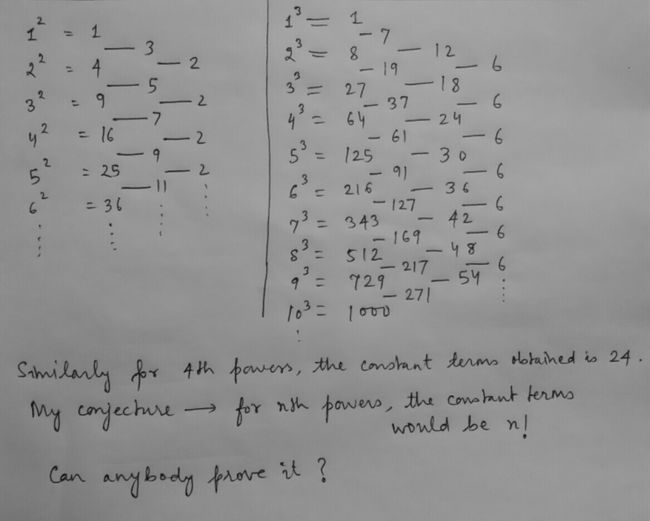 1² = 1
— 3
2² = 4 — 2
— 5
3² = 9 — 2
— 7
4² = 16 — 2
— 9
5² = 25 — 2
— 11
6² = 36
1³ = 1
– 7
2³ = 8 — 12
– 19 — 6
3³ = 27 — 18
– 37 — 6
4³ = 64 — 24
– 61 — 6
5³ = 125 — 30
– 91 — 6
6³ = 216 — 36
– 127 — 6
7³ = 343 — 42
– 169 — 6
8³ = 512 — 48
– 217 — 6
9³ = 729 — 54
– 271
10³ = 1000
Similarly for 4th powers, the constant terms obtained is 24.
My conjecture → for nth powers, the constant terms
would be n!
Can anybody prove it?